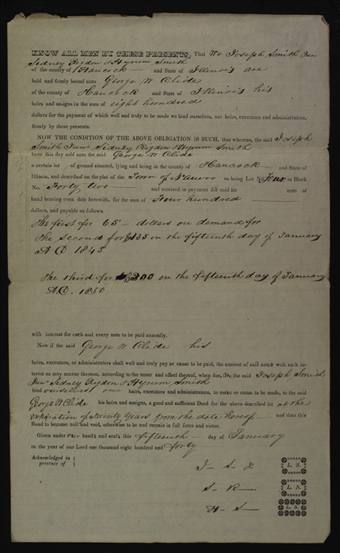 KNOW ALL MEN BY THESE PRESENTS, That We Joseph Smith Jun
Sidney Rigdon & Hyrum Smith
of the county of Hancock and State of Illinois are
held and firmly bound unto George W
of the county of Hancock and State of Illinois his
heirs and assigns in the sum of eight hundred
dollars for the payment of which well and truly to be made we bind ourselves, our heirs, executors and administrators,
firmly by these presents.
NOW THE CONDITION OF THE ABOVE OBLIGATION IS SUCH, that whereas, the said Joseph
Smith Jun Sidney Rigdon & Hyrum Smith
have this day sold unto the said George W
a certain lot of ground situated, lying and being in the county of Hancock State of
Illinois, and described on the plat of the Town of Nauvoo as being Lot No. Four in Block
No. Forty two and received in payment for said lot notes of
hand bearing even date herewith, for the sum of Four hundred
dollars, and payable as follows.
The first for 65 dollars on demand for
The Second for $135 on the fifteenth day of January
A D 1845
The third for $200 on the fifteenth day of January
A.D. 1850
with interest for each and every note to be paid annually.
Now if the said George W his
heirs, executors, or administrators shall well and truly pay or cause to be paid, the amount of said notes with interest as
any accrue thereon, according to the tenor and effect thereof, when due, the said Joseph Smith
Jun Sidney Rigdon & Hyrum Smith
bind ourselves our heirs, executors, administrators, to make or cause to be made, to the said
George W his heirs and assigns, a good and sufficient Deed for the above described lot at the
expiration of twenty Years from the date hereof and then this
Bond to become null and void, otherwise to be and remain in full force and virtue.
Given under our hands and seals the fifteenth day of January
in the year of our Lord one thousand eight hundred and forty
Acknowledged in
presence of
J - S - J L. S.
S - R - L. S.
H - S - L. S.